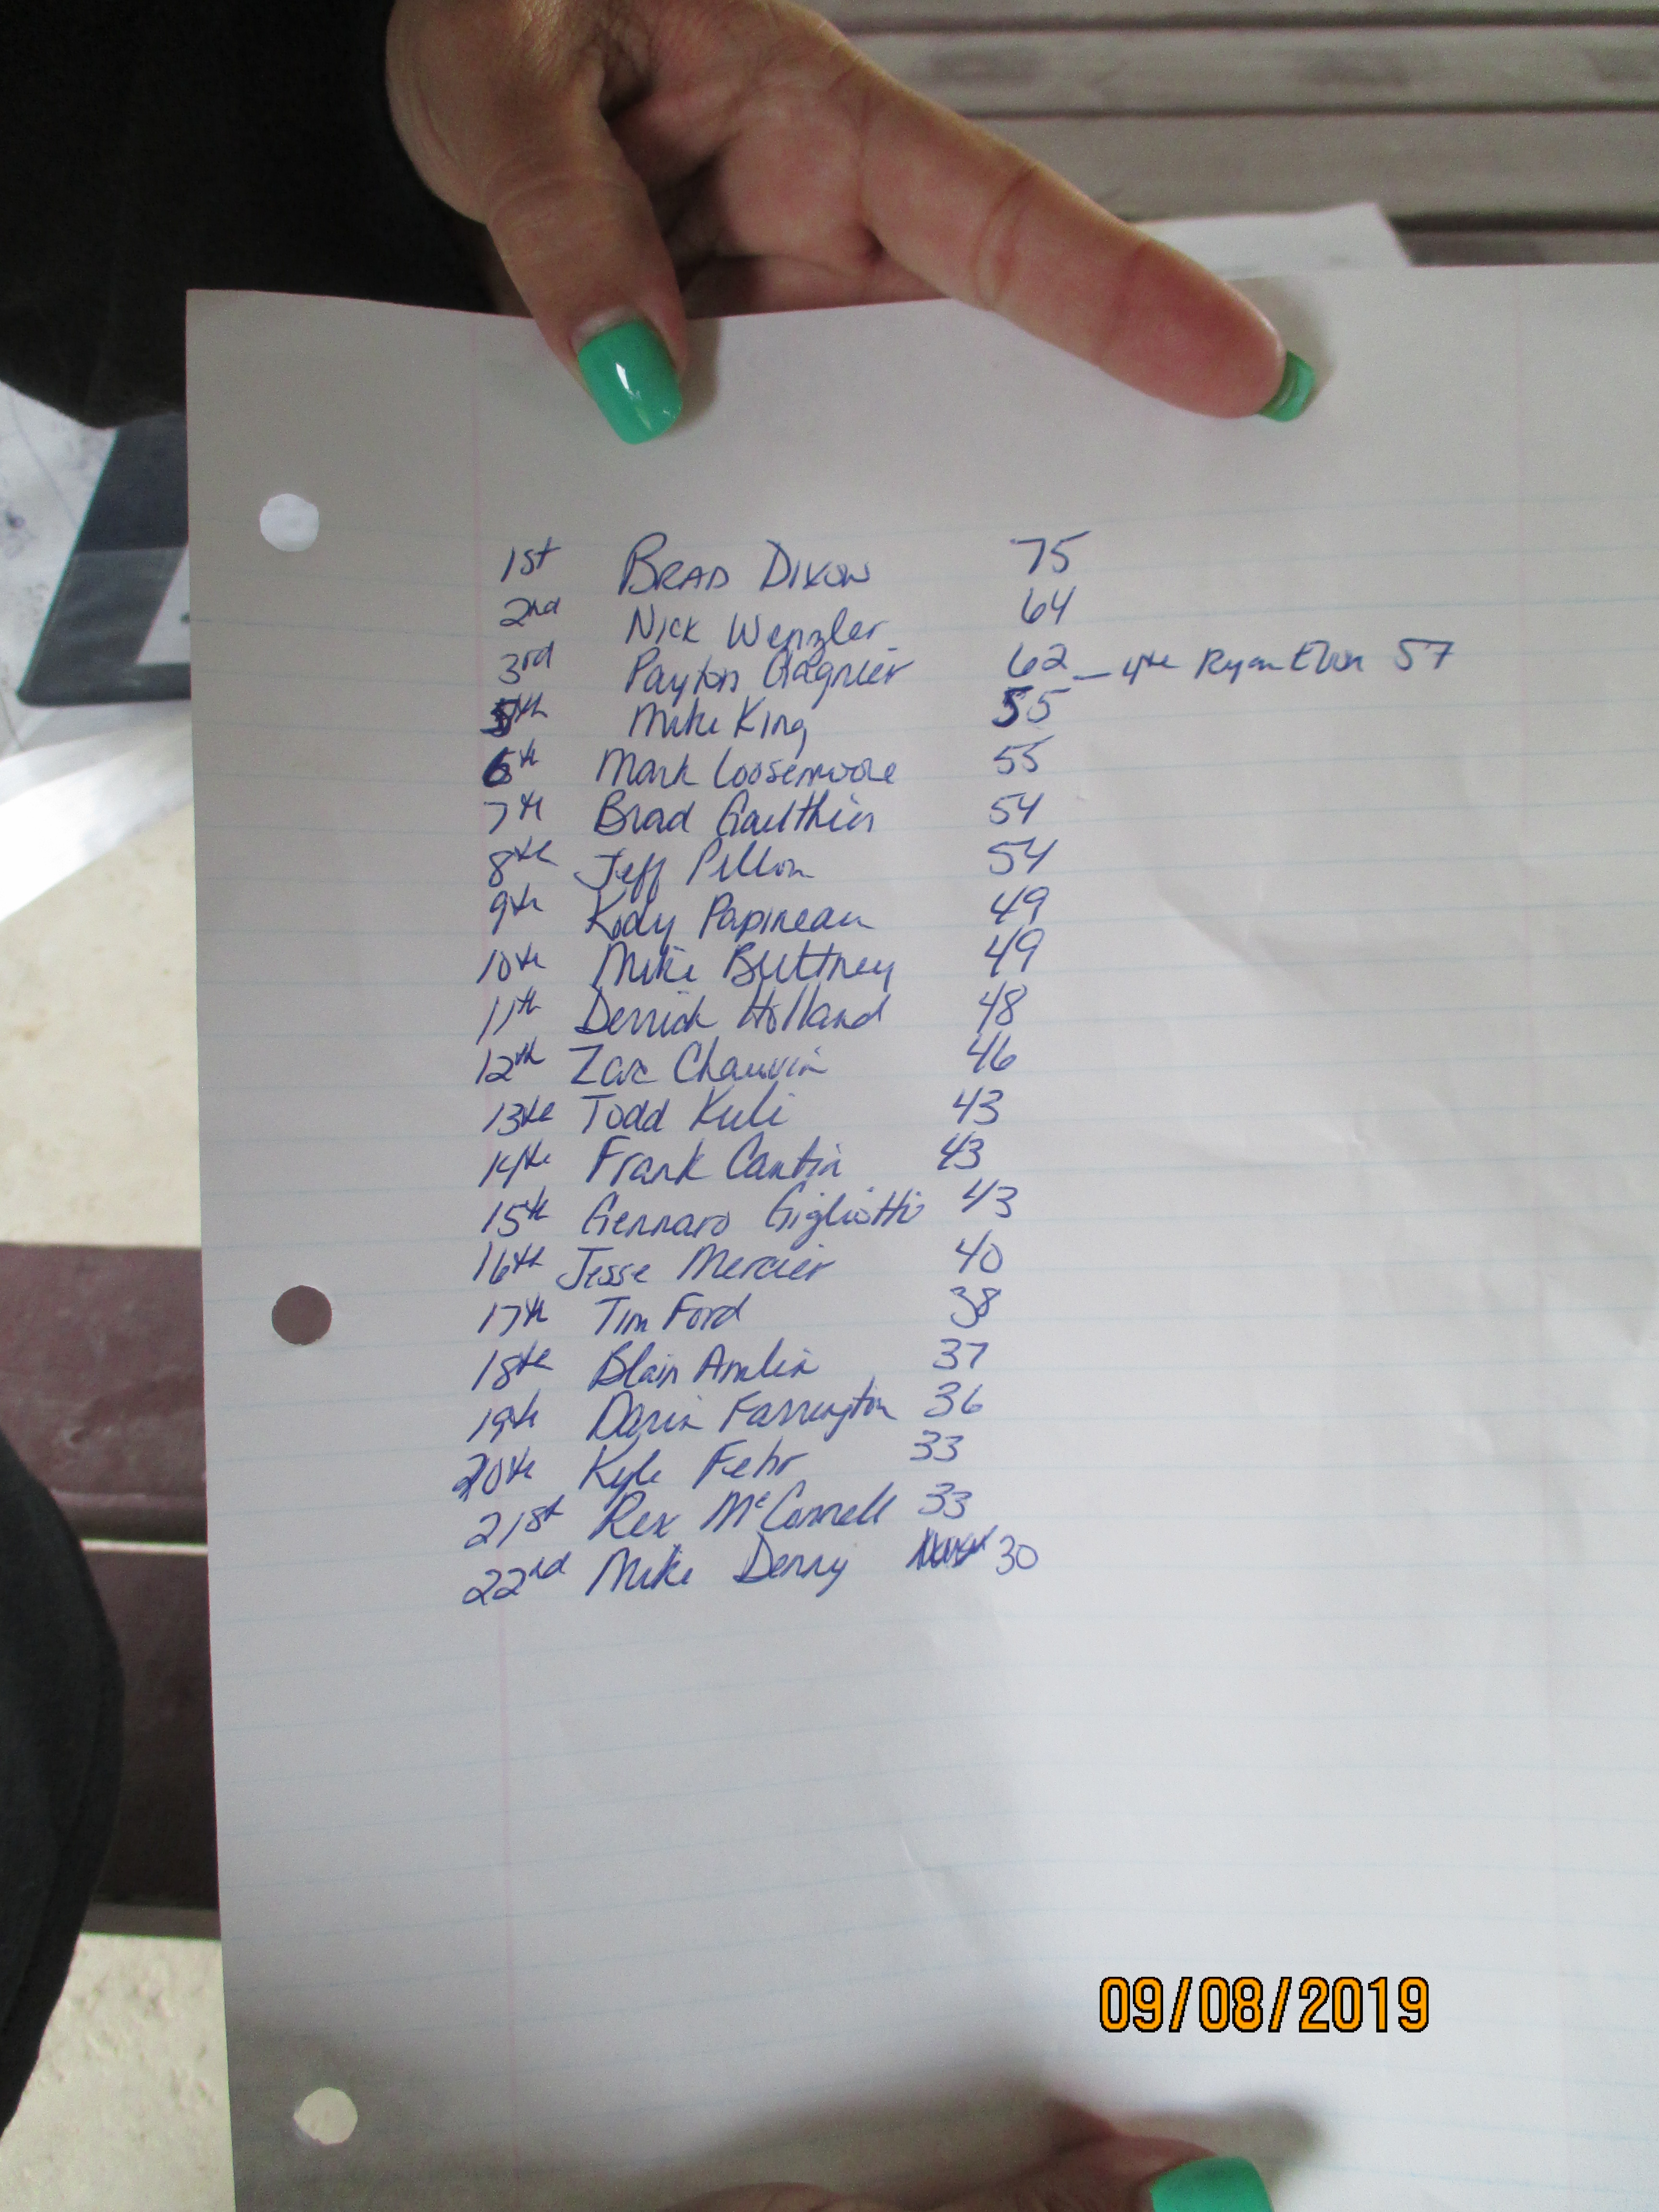 1st BRAD DIXON 75
2nd Nick Wenzler 64
3rd Payton Gagnier 62 - 4th Ryan 57
5th Mike King 55
6th Mark Loosemore 55
7th Brad Gaulthier 54
8th Jeff Pillon 54
9th Kody Papineau 49
10th Mike Buttney 49
11th Derrick Holland 48
12th Zac Chauvin 46
13th Todd Kuli 43
14th Frank Cantin 43
15th Gennaro Gigliotti 43
16th Jesse Mercier 40
17th Tim Ford 38
18th Blain Amlin 37
19th Darin Farrington 36
20th Kyle Fehr 33
21st Rex McConnell 33
22nd Mike Denny 30
09/08/2019